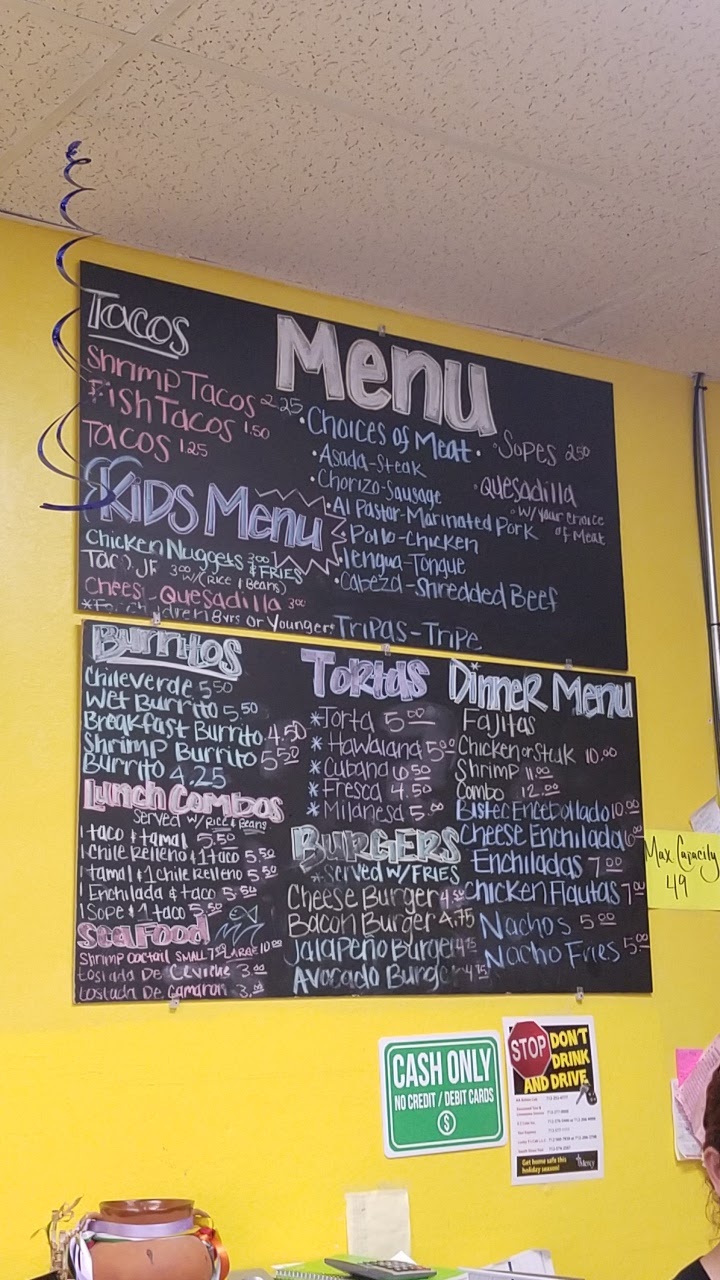 Menu
Tacos
Shrimp Tacos 2.25
Fish Tacos 1.50
Tacos 1.25
Kids Menu
Chicken Nuggets 3.00 & FRIES
3.00 w/(Rice & Beans)
Quesadilla 3.00
8yrs or Younger
• Choices of Meat •
• Asada-Steak
• Chorizo-Sausage
• Al Pastor-Marinated Pork
• Pollo-Chicken
• lengua-Tongue
• Cabeza-Shredded Beef
Tripas-Tripe
• Sopes 2.50
• Quesadilla
w/your choice
of Meat
Burritos
Chile verde 5.50
Wet Burrito 5.50
Breakfast Burrito 4.50
Shrimp Burrito 5.50
Burrito 4.25
Lunch Combos
Served w/Rice & Beans
1 taco & tamal 5.50
1 Chile Relleno & 1 taco 5.50
1 tamal & 1 chile Relleno 5.50
1 Enchilada & taco 5.50
1 Sope & 1 taco 5.50
Seafood
Shrimp Cocktail SMALL 7.50 LARGE 10.00
tostada De Ceviche 3.00
tostada De Camaron 3.00
Tortas
* Torta 5.00
* Hawaiana 5.00
* Cubana 6.50
* Fresca 4.50
* Milanesa 5.00
BURGERS
*Served w/FRIES
Cheese Burger 4.50
Bacon Burger 4.75
Jalapeño Burger 4.75
Avocado Burger 4.75
Dinner Menu
Fajitas
Chicken or Steak 10.00
Shrimp 11.00
Combo 12.00
Bistec Encebollado 10.00
Cheese Enchilada 6.00
Enchiladas 7.00
Chicken Flautas 7.00
Nachos 5.00
Nacho Fries 5.00
Max Capacity
49
CASH ONLY
NO CREDIT / DEBIT CARDS
$
STOP
DON'T
DRINK
AND DRIVE
Get home safe this
holiday season!
Mercy